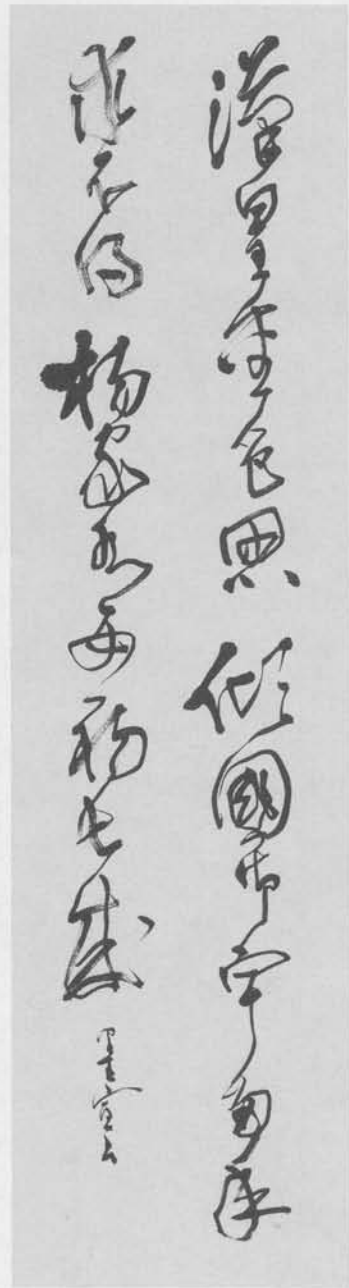 漢皇重色思傾國御宇多年
求不得楊家有女初長成
墨宣